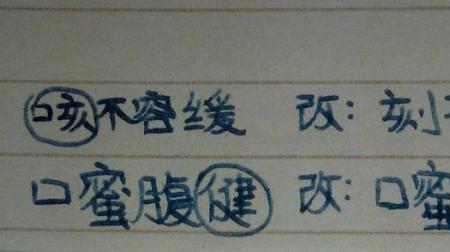 咳不容缓 改：刻
口蜜腹健 改：口蜜